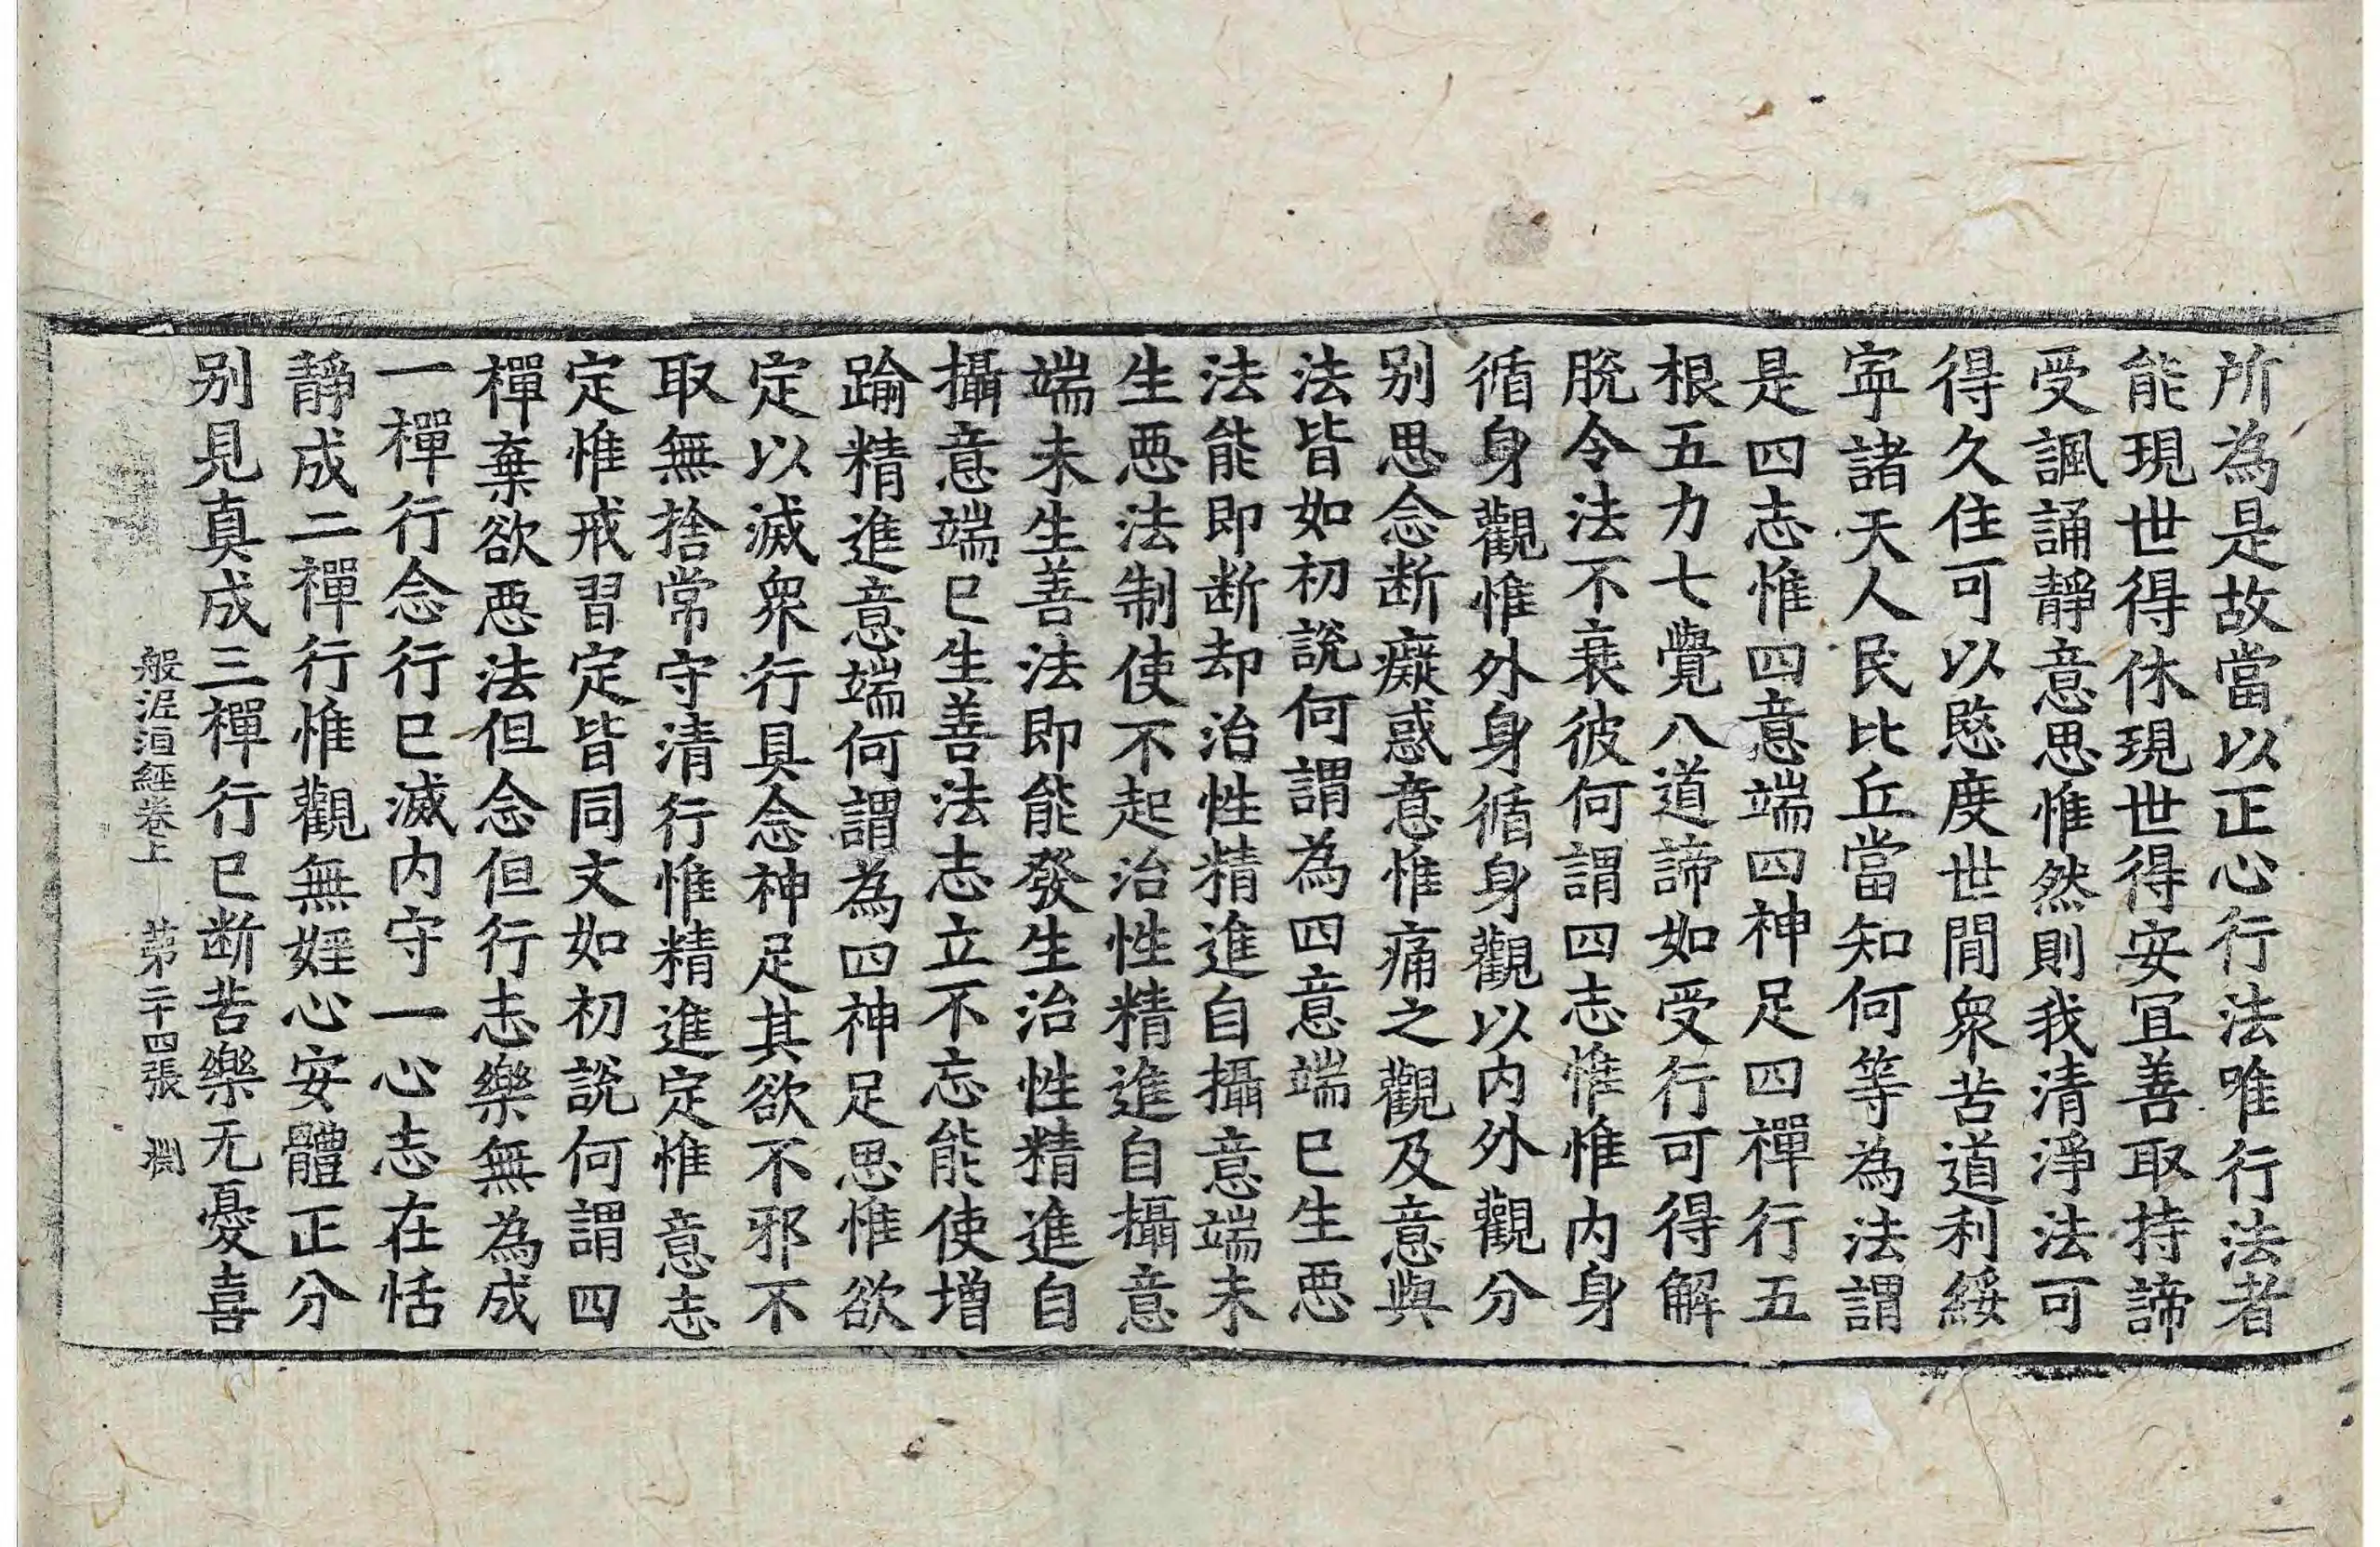 所為是故當以正心行法唯行法者
能現世得休現世得安冝善取持諦
受諷誦靜意思惟然則我清淨法可
得久住可以愍度世間衆苦道利綏
寕諸天人民比丘當知何等為法謂
是四志惟四意端四神足四禪行五
根五力七覺八道諦如受行可得解
脫令法不衰彼何謂四志惟惟内身
循身觀惟外身循身觀以内外觀分
别思念断癡惑意惟痛之觀及意與
法皆如初說何謂為四意端已生悪
法能即断却治性精進自攝意端未
生悪法制使不起治性精進自攝意
端未生善法即能發生治性精進自
攝意端已生善法志立不忘能使增
踰精進意端何謂為四神足思惟欲
定以滅衆行具念神足其欲不邪不
取無捨常守清行惟精進定惟意志
定惟戒習定皆同文如初說何謂四
禪棄欲悪法但念但行志樂無為成
一禪行念行已滅内守一心志在恬
靜成二禪行惟觀無婬心安體正分
别見真成三禪行已断苦樂无憂喜
般泥洹經卷上 第二十四張 淵